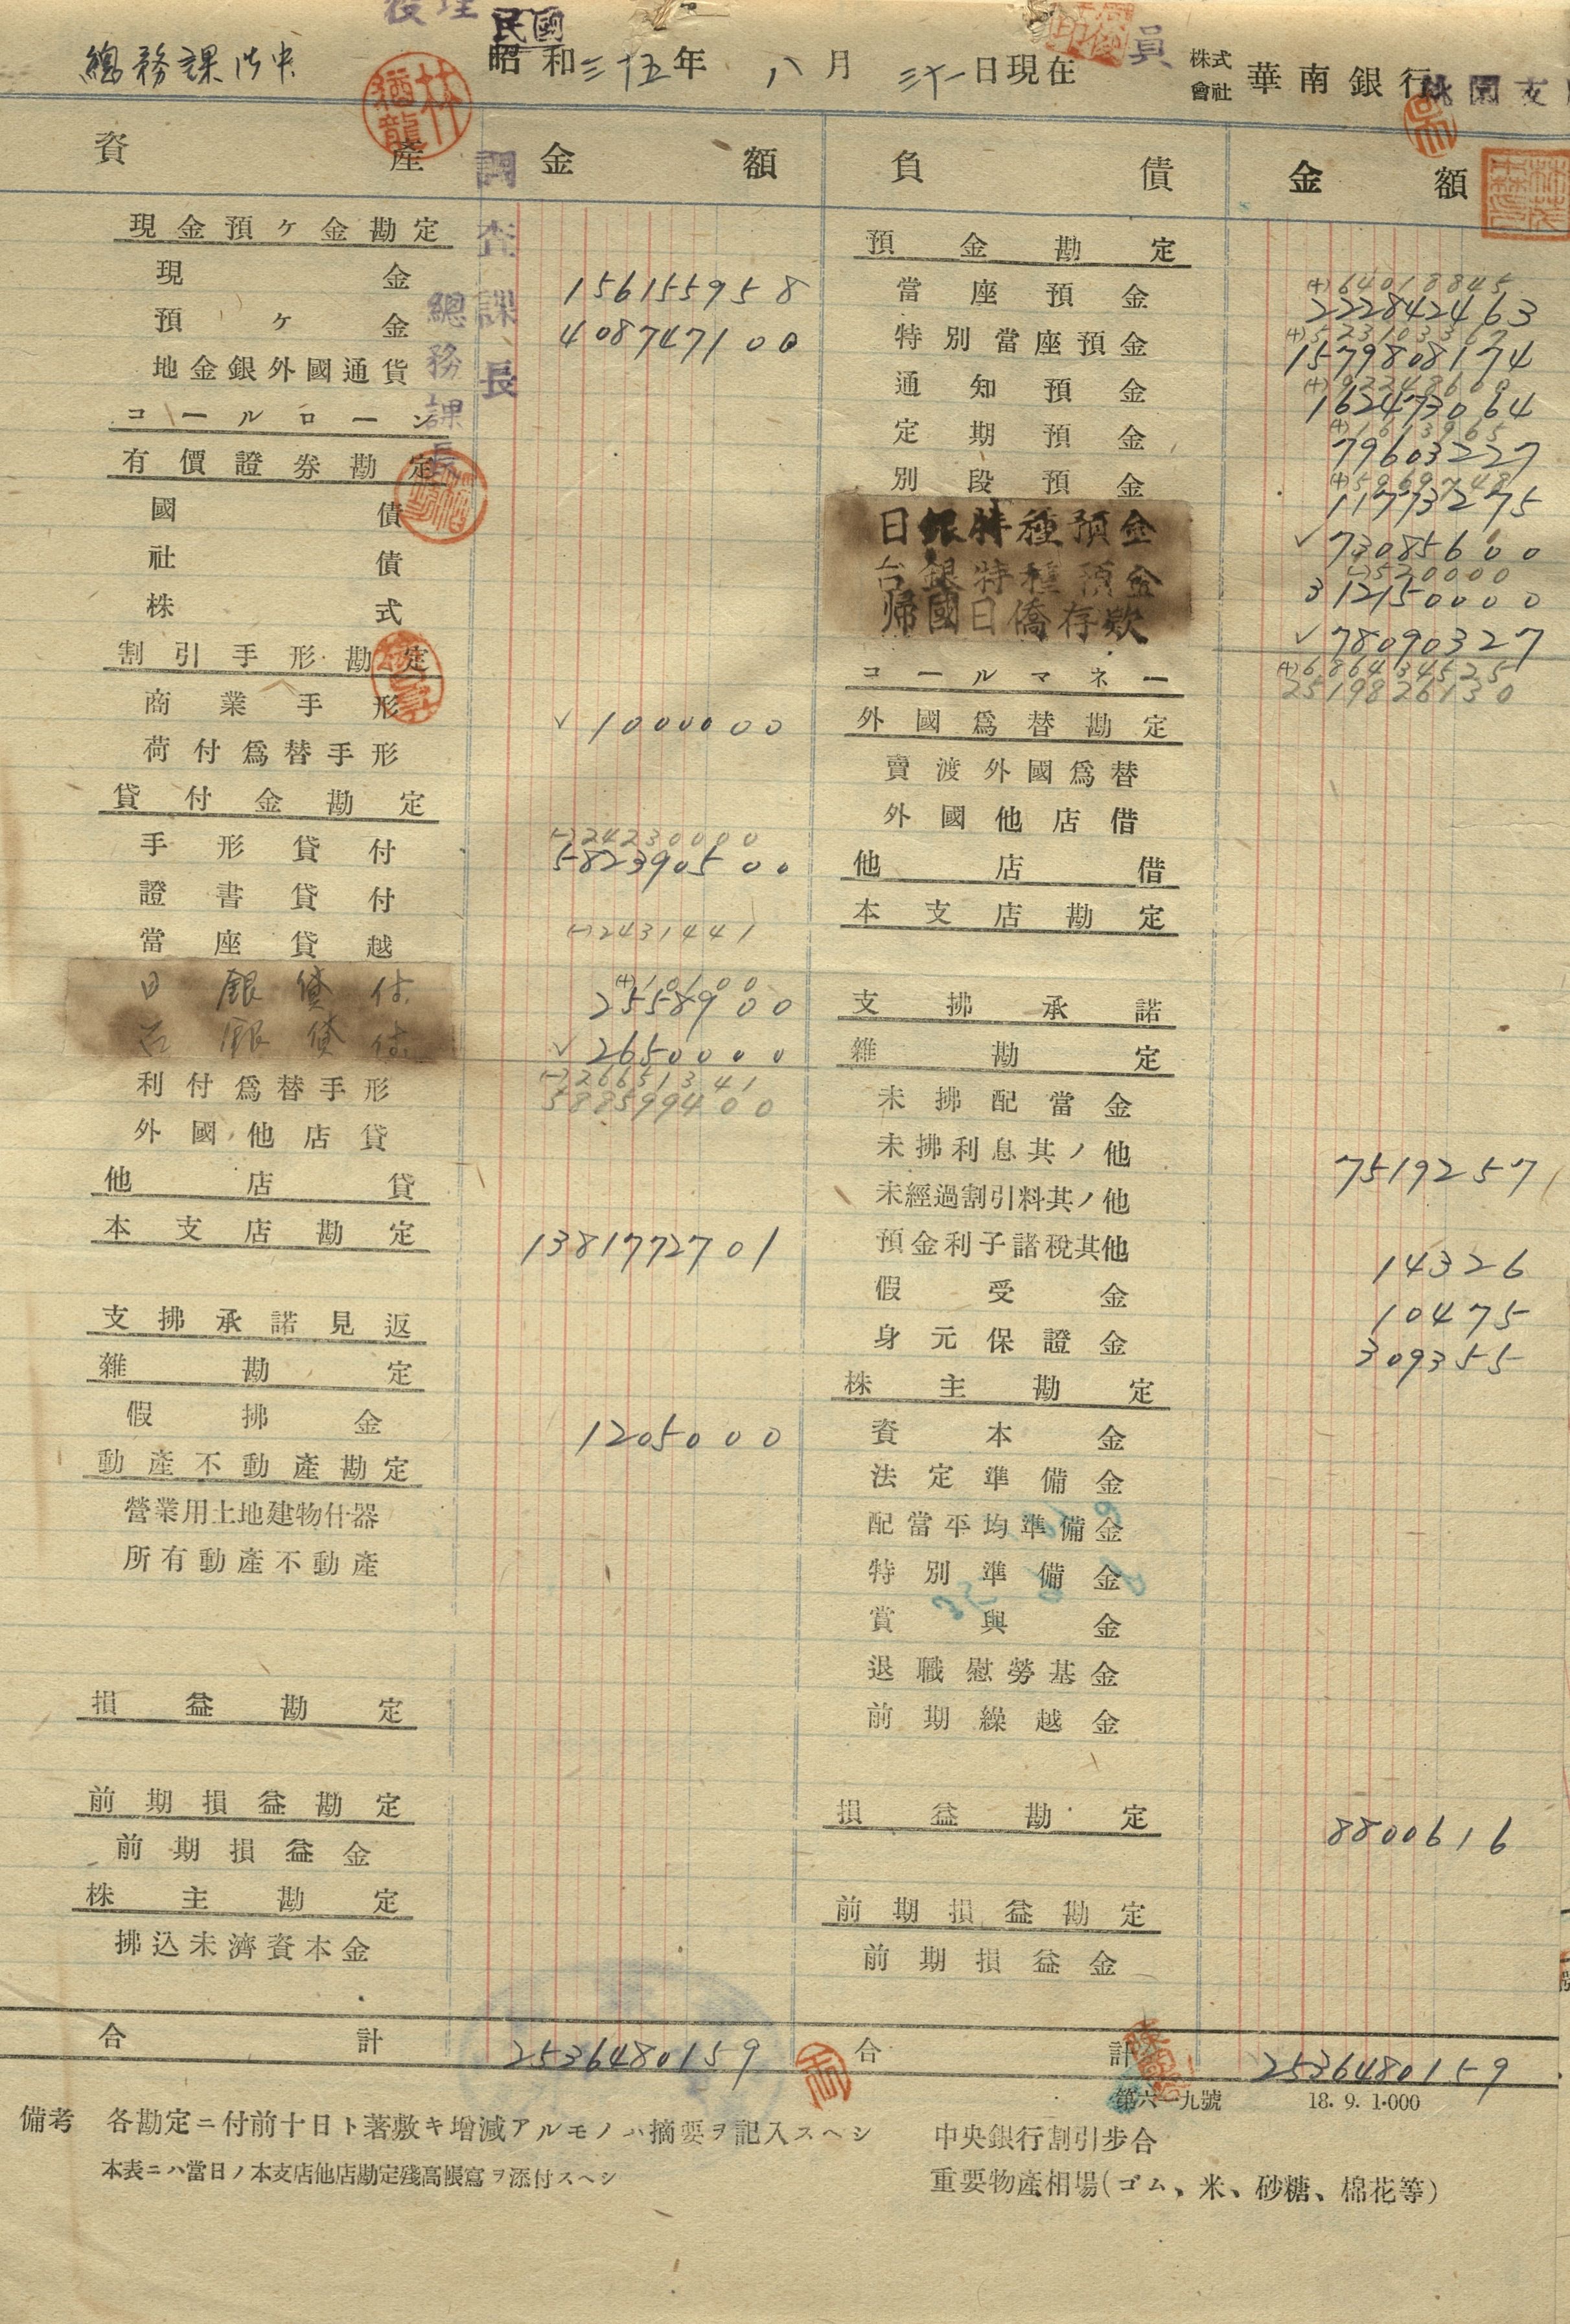 總務課
民國
昭和三十五年 八月 三十一日現在 株式會社 華南銀行 桃園支
員
林猶龍
調查課長
總務課長
資產 金額 負債 金額
現金預ヶ金勘定
現金 156155958
預ヶ金 408747100
地金銀外國通貨
コールローン
有價證券勘定
國債
社債
株式
割引手形勘定
商業手形 ✓1000000
荷付爲替手形
貸付金勘定
手形貸付 (-)24230000
582390500
證書貸付
當座貸越 (-)2431441
日銀貸付 (+)10100
2558900
台銀貸付 ✓2650000
利付爲替手形 (-)26651341
588599400
外國他店貸
他店貸
本支店勘定 1381772701
支拂承諾見返
雜勘定
假拂金 1205000
動產不動產勘定
營業用土地建物什器
所有動產不動產
損益勘定
前期損益勘定
前期損益金
株主勘定
拂込未濟資本金
合計 2536480159
預金勘定
當座預金 (+)64018845
222842463
特別當座預金 (+)523103367
1579808174
通知預金 (+)93348600
162473064
定期預金 (+)1613965
79603227
別段預金 (+)5969748
11773275
日銀特種預金 ✓73085600
台銀特種預金 (-)3520000
312150000
帰國日僑存欵 ✓78090327
コールマネー (+)686434525
2519826130
外國爲替勘定
賣渡外國爲替
外國他店借
他店借
本支店勘定
支拂承諾
雜勘定
未拂配當金
未拂利息其ノ他 7519257
未經過割引料其ノ他
預金利子諸稅其他 14326
假受金 10475
身元保證金 309355
株主勘定
資本金
法定準備金
配當平均準備金
特別準備金
賞與金
退職慰勞基金
前期繰越金
損益勘定 8800616
前期損益勘定
前期損益金
合計 2536480159
第六一九號 18. 9. 1·000
備考 各勘定ニ付前十日ト著敷キ增減アルモノハ摘要ヲ記入スヘシ
本表ニハ當日ノ本支店他店勘定殘高帳寫ヲ添付スヘシ
中央銀行割引步合
重要物產相場(ゴム、米、砂糖、棉花等)